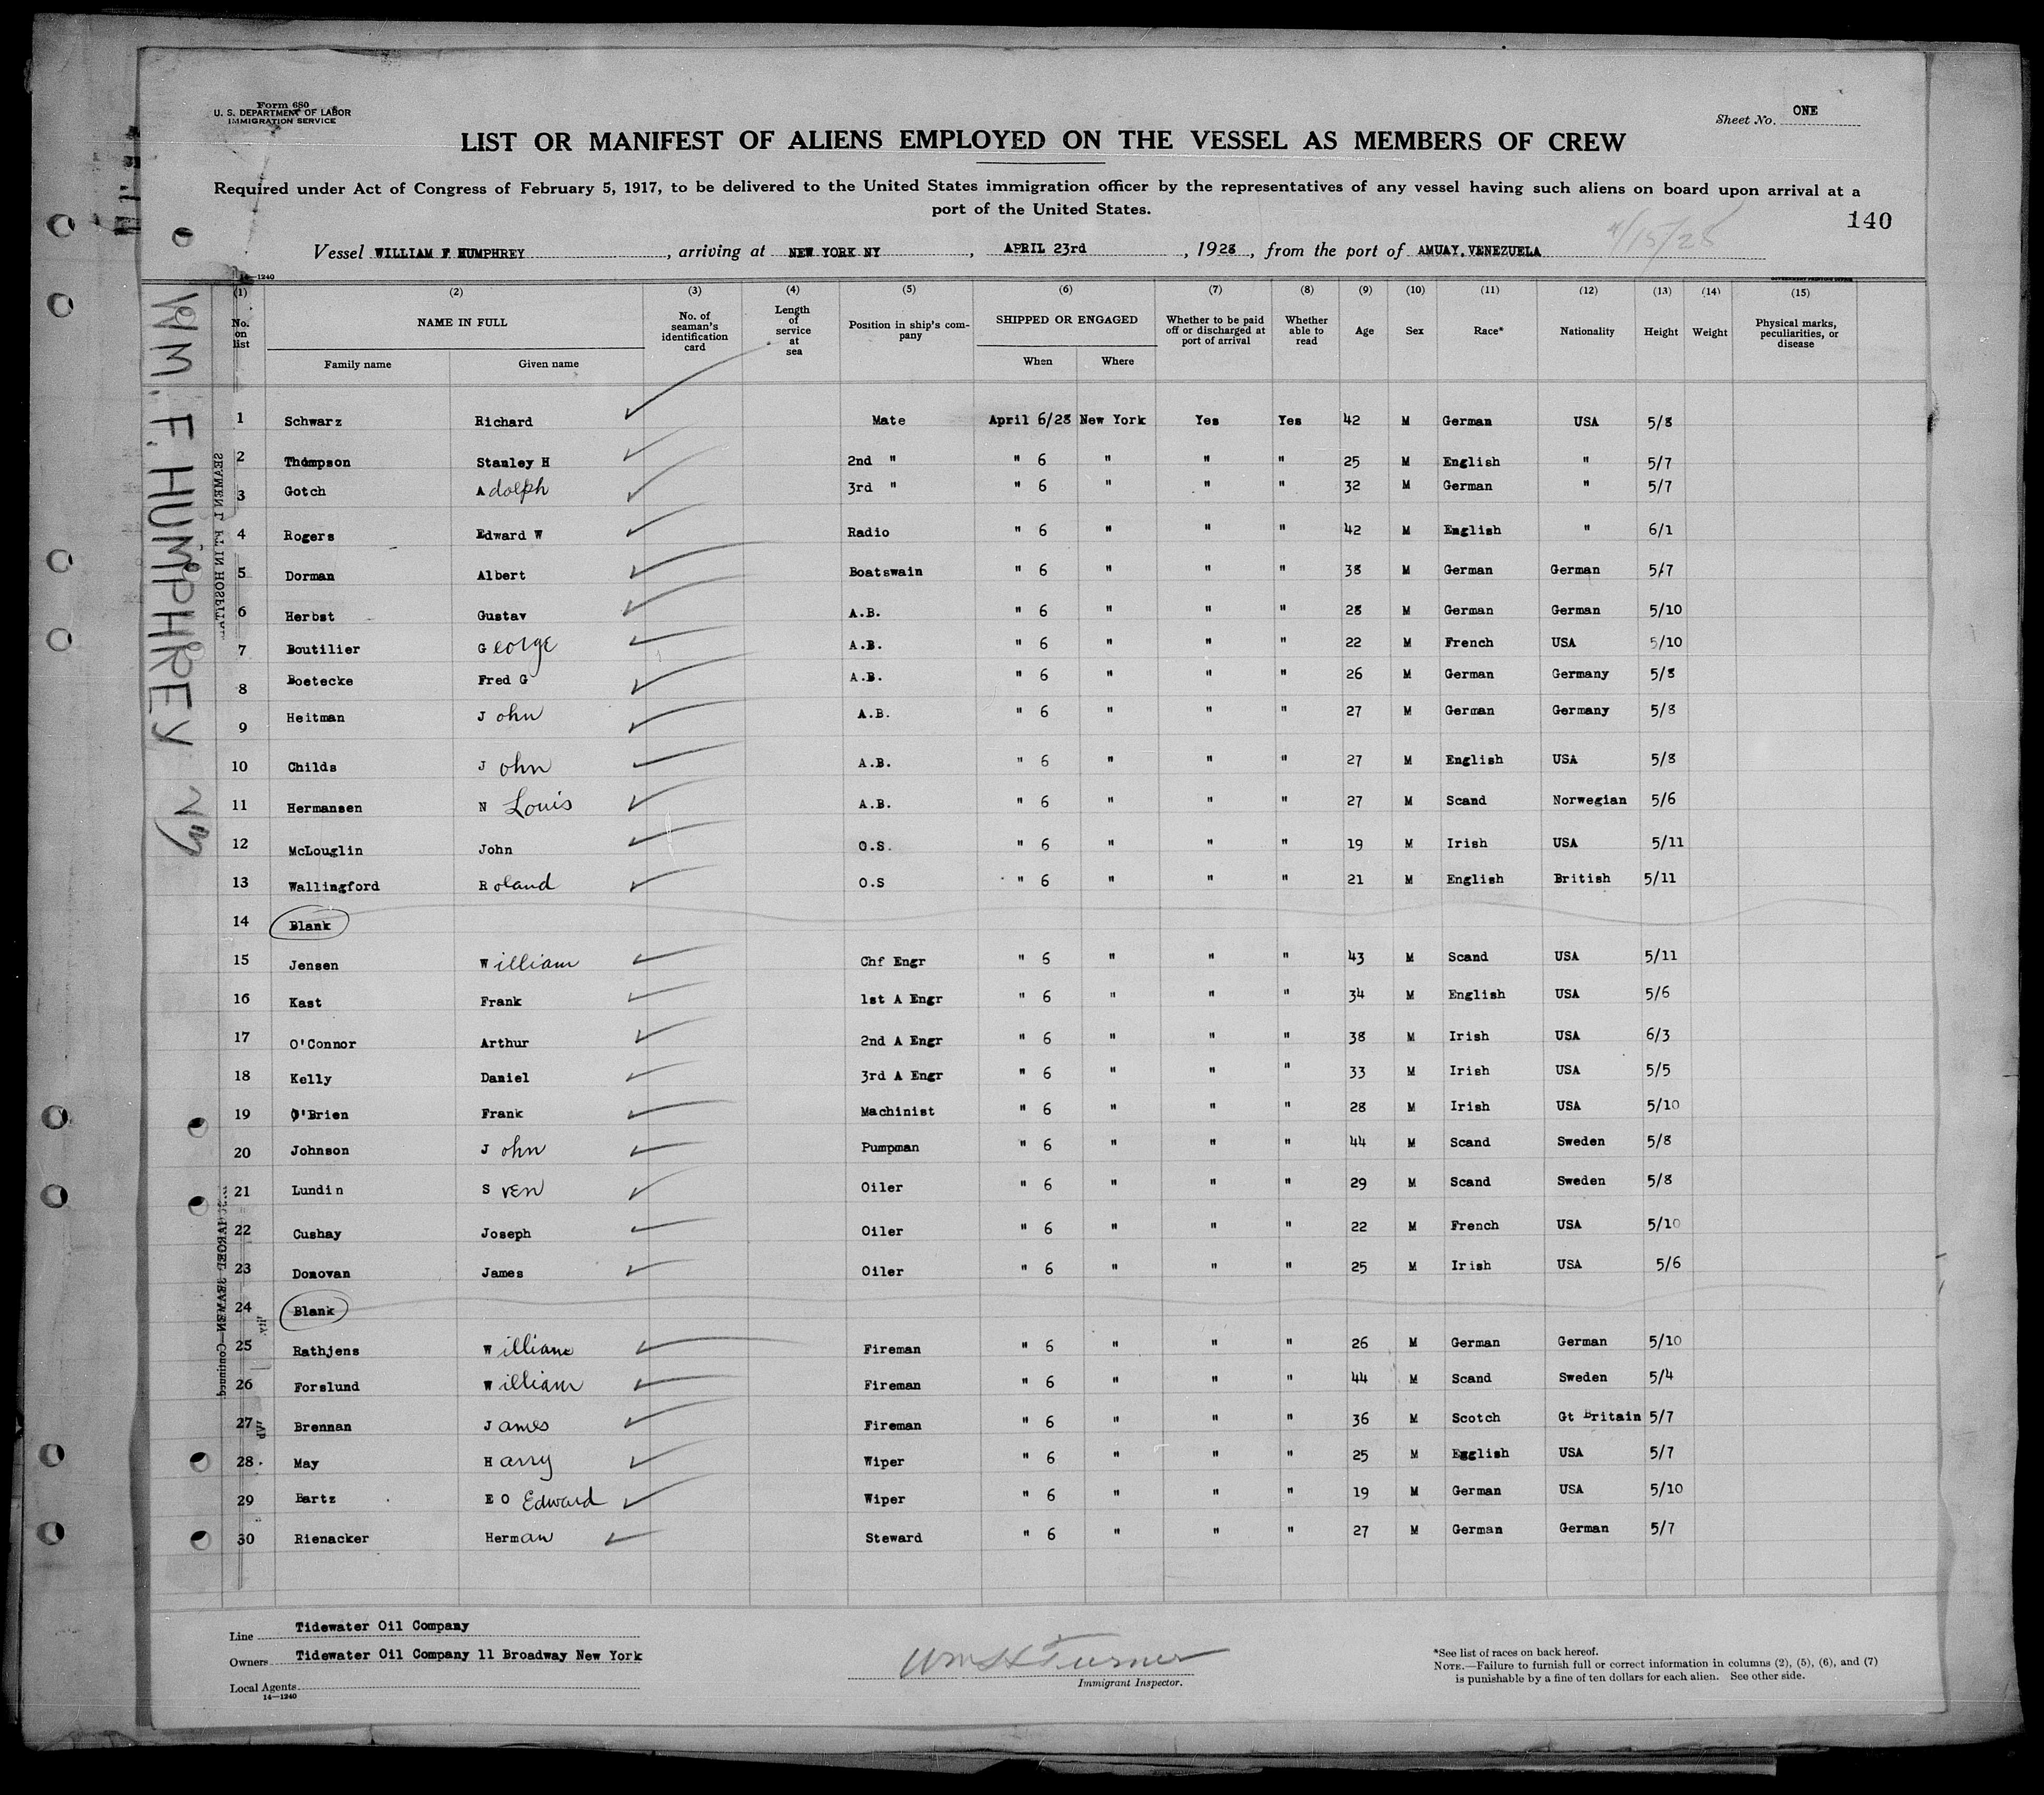 Form 680
U. S. DEPARTMENT OF LABOR
IMMIGRATION SERVICE
Sheet No. ONE
LIST OR MANIFEST OF ALIENS EMPLOYED ON THE VESSEL AS MEMBERS OF CREW
Required under Act of Congress of February 5, 1917, to be delivered to the United States immigration officer by the representatives of any vessel having such aliens on board upon arrival at a
port of the United States.
140
4/15/28
Vessel WILLIAM F HUMPHREY, arriving at NEW YORK NY, APRIL 23rd, 1928, from the port of AMUAY, VENEZUELA
14—1240
WM. F. HUMPHREY
(1) (2) (3) (4) (5) (6) (7) (8) (9) (10) (11) (12) (13) (14) (15)
No. on list NAME IN FULL No. of seaman's identification card Length of service at sea Position in ship's company SHIPPED OR ENGAGED Whether to be paid off or discharged at port of arrival Whether able to read Age Sex Race* Nationality Height Weight Physical marks, peculiarities, or disease
Family name Given name When Where
1 Schwarz Richard Mate April 6/28 New York Yes Yes 42 M German USA 5/8
2 Thompson Stanley H 2nd " " 6 " " " 25 M English " 5/7
3 Gotch Adolph 3rd " " 6 " " " 32 M German " 5/7
4 Rogers Edward W Radio " 6 " " " 42 M English " 6/1
5 Dorman Albert Boatswain " 6 " " " 38 M German German 5/7
6 Herbst Gustav A.B. " 6 " " " 28 M German German 5/10
7 Boutilier George A.B. " 6 " " " 22 M French USA 5/10
8 Boetecke Fred G A.B. " 6 " " " 26 M German Germany 5/8
9 Heitman John A.B. " 6 " " " 27 M German Germany 5/8
10 Childs John A.B. " 6 " " " 27 M English USA 5/8
11 Hermansen N Louis A.B. " 6 " " " 27 M Scand Norwegian 5/6
12 McLouglin John O.S. " 6 " " " 19 M Irish USA 5/11
13 Wallingford Roland O.S " 6 " " " 21 M English British 5/11
14 Blank
15 Jensen William Chf Engr " 6 " " " 43 M Scand USA 5/11
16 Kast Frank 1st A Engr " 6 " " " 34 M English USA 5/6
17 O'Connor Arthur 2nd A Engr " 6 " " " 38 M Irish USA 6/3
18 Kelly Daniel 3rd A Engr " 6 " " " 33 M Irish USA 5/5
19 O'Brien Frank Machinist " 6 " " " 28 M Irish USA 5/10
20 Johnson John Pumpman " 6 " " " 44 M Scand Sweden 5/8
21 Lundin Sven Oiler " 6 " " " 29 M Scand Sweden 5/8
22 Cushay Joseph Oiler " 6 " " " 22 M French USA 5/10
23 Donovan James Oiler " 6 " " " 25 M Irish USA 5/6
24 Blank
25 Rathjens William Fireman " 6 " " " 26 M German German 5/10
26 Forslund William Fireman " 6 " " " 44 M Scand Sweden 5/4
27 Brennan James Fireman " 6 " " " 36 M Scotch Gt Britain 5/7
28 May Harry Wiper " 6 " " " 25 M Egglish USA 5/7
29 Bartz E O Edward Wiper " 6 " " " 19 M German USA 5/10
30 Rienacker Herman Steward " 6 " " " 27 M German German 5/7
Line Tidewater Oil Company
Owners Tidewater Oil Company 11 Broadway New York
Local Agents
14—1240
Wm H Turner
Immigrant Inspector.
*See list of races on back hereof.
NOTE.—Failure to furnish full or correct information in columns (2), (5), (6), and (7)
is punishable by a fine of ten dollars for each alien. See other side.